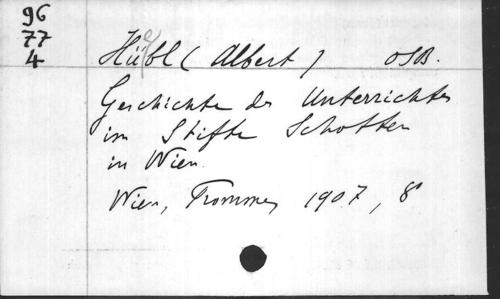 96
77
4
Hübl (Albert) OSB.
Geschichte des Unterrichtes
im Stifte Schotten
in Wien.
Wien, Fromme, 1907, 8°